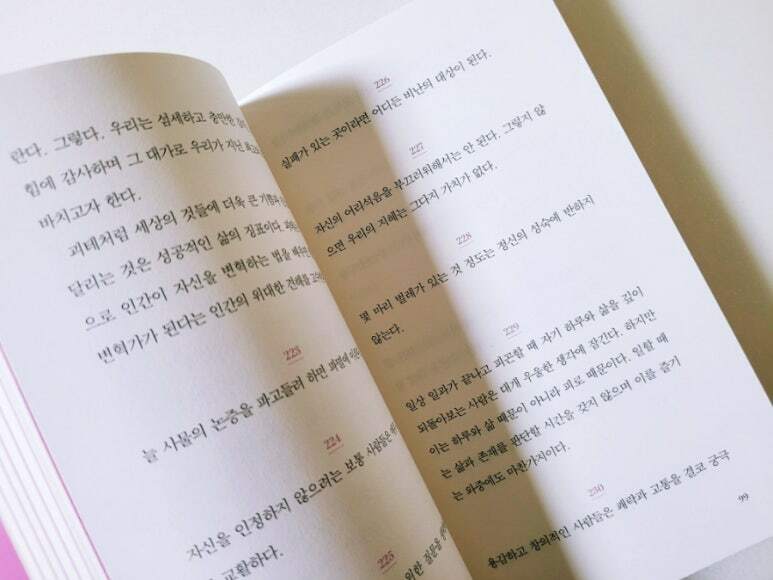 란다. 그렇다. 우리는 섬세하고 충만한
힘에 감사하며 그 대가로 우리가 지닌
바치고자 한다.
괴테처럼 세상의 것들에 더욱 큰 기쁨과
달리는 것은 성공적인 삶의 징표이다.
으로 인간이 자신을 변혁하는 법을
변혁가가 된다는 인간의 위대한 견해를
223
늘 사물의 논증을 파고들려 하면 파멸에
224
자신을 인정하지 않으려는 보통 사람들은
교활하다.
225
위한 질문을
226
실패가 있는 곳이라면 어디든 비난의 대상이 된다.
227
자신의 어리석음을 부끄러워해서는 안 된다. 그렇지 않
으면 우리의 지혜는 그다지 가치가 없다.
228
몇 마리 벌레가 있는 것 정도는 정신의 성숙에 반하지
않는다.
229
일상 일과가 끝나고 피곤할 때 자기 하루와 삶을 깊이
되돌아보는 사람은 대개 우울한 생각에 잠긴다. 하지만
이는 하루와 삶 때문이 아니라 피로 때문이다. 일할 때
는 삶과 존재를 판단할 시간을 갖지 않으며 이를 즐기
는 와중에도 마찬가지이다.
230
용감하고 창의적인 사람들은 쾌락과 고통을 결코 궁극
99